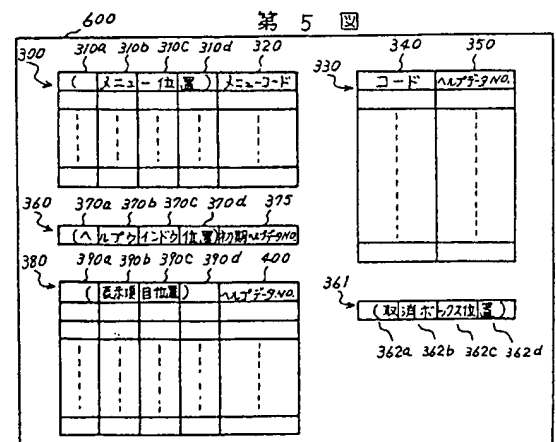 第 5 図
600
300 310a 310b 310c 310d 320
(メニュー位置) メニューコード
340 350
330
コード ヘルプデータNO.
360 370a 370b 370c 370d 375
(ヘルプウインドウ位置) 初期ヘルプデータNO.
380 390a 390b 390c 390d 400
(表示項目位置) ヘルプデータNO.
361
(取消ボックス位置)
362a 362b 362c 362d